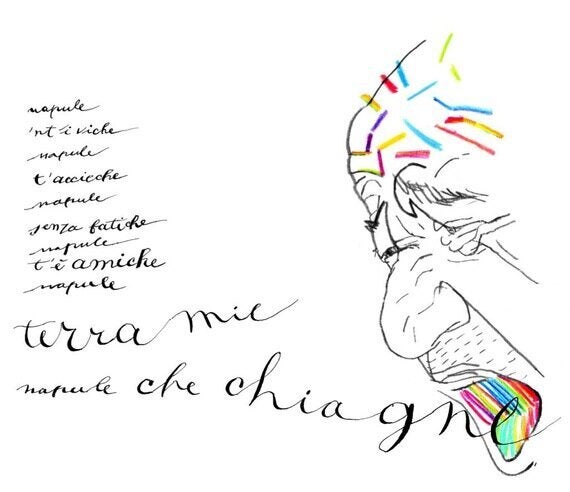 napule
'nt'è viche
napule
t'accicche
napule
senza fatiche
napule
t'è amiche
napule
terra mie
napule che chiagne